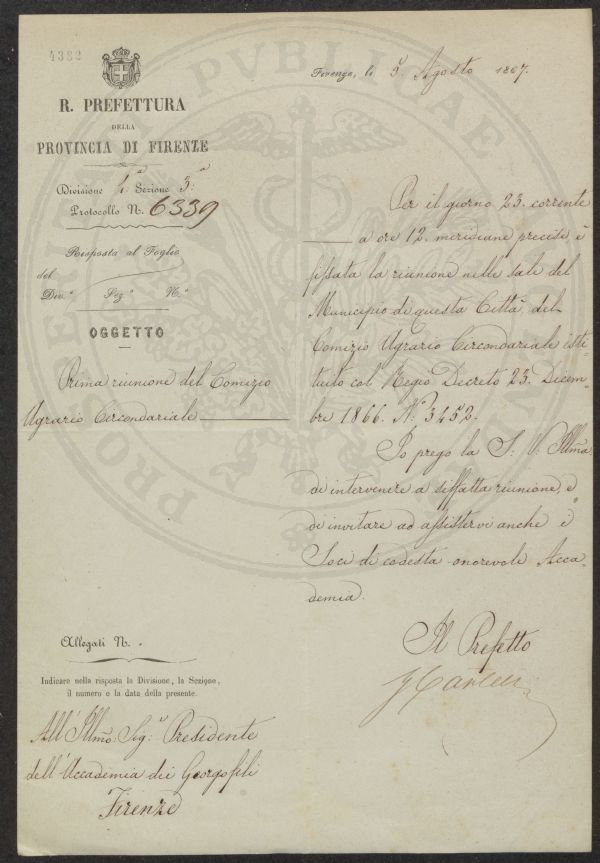 4382
Firenze, li 5. Agosto 1867.
R. PREFETTURA
DELLA
PROVINCIA DI FIRENZE
Divisione 4a Sezione 3:a
Protocollo N. 6339
Risposta al Foglio
del
Div.e Sez.e N.o
OGGETTO
Prima riunione del Comizio
Agrario Circondariale
Per il giorno 23. corrente
a ore 12. meridiane precise, è
fissata la riunione nelle sale del
Municipio di questa Città del
Comizio Agrario Circondariale isti-
tuito col Regio Decreto 23. Dicem-
bre 1866. N.o 3452.
Io prego la S: V: Illma
di intervenire a siffatta riunione, e
di invitare ad assistervi anche i
Soci di codesta onorevole Acca-
demia.
Il Prefetto
Allegati N.
Indicare nella risposta la Divisione, la Sezione,
il numero e la data della presente.
All'Illmo: Sig:r Presidente
dell'Accademia dei Georgofili
Firenze
PVBLICAE